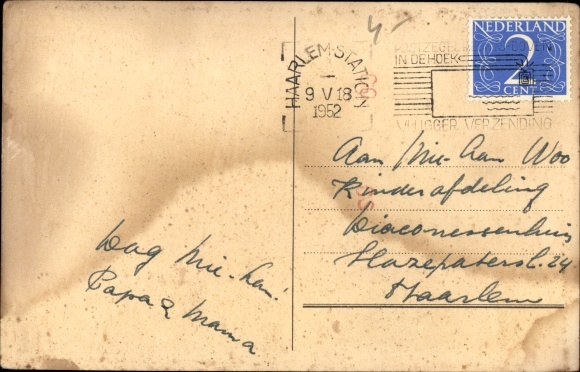 4-
NEDERLAND
2
CENT
HAARLEM-STATION
9 V 18
1952
POSTZEGEL
IN DE HOEK
VLUGGER VERZENDING
Aan Mie-Han Woo
Kinderafdeling
Diaconessenhuis
Hazepatersl. 24
Haarlem
Dag Mie-Han!
Papa & Mama